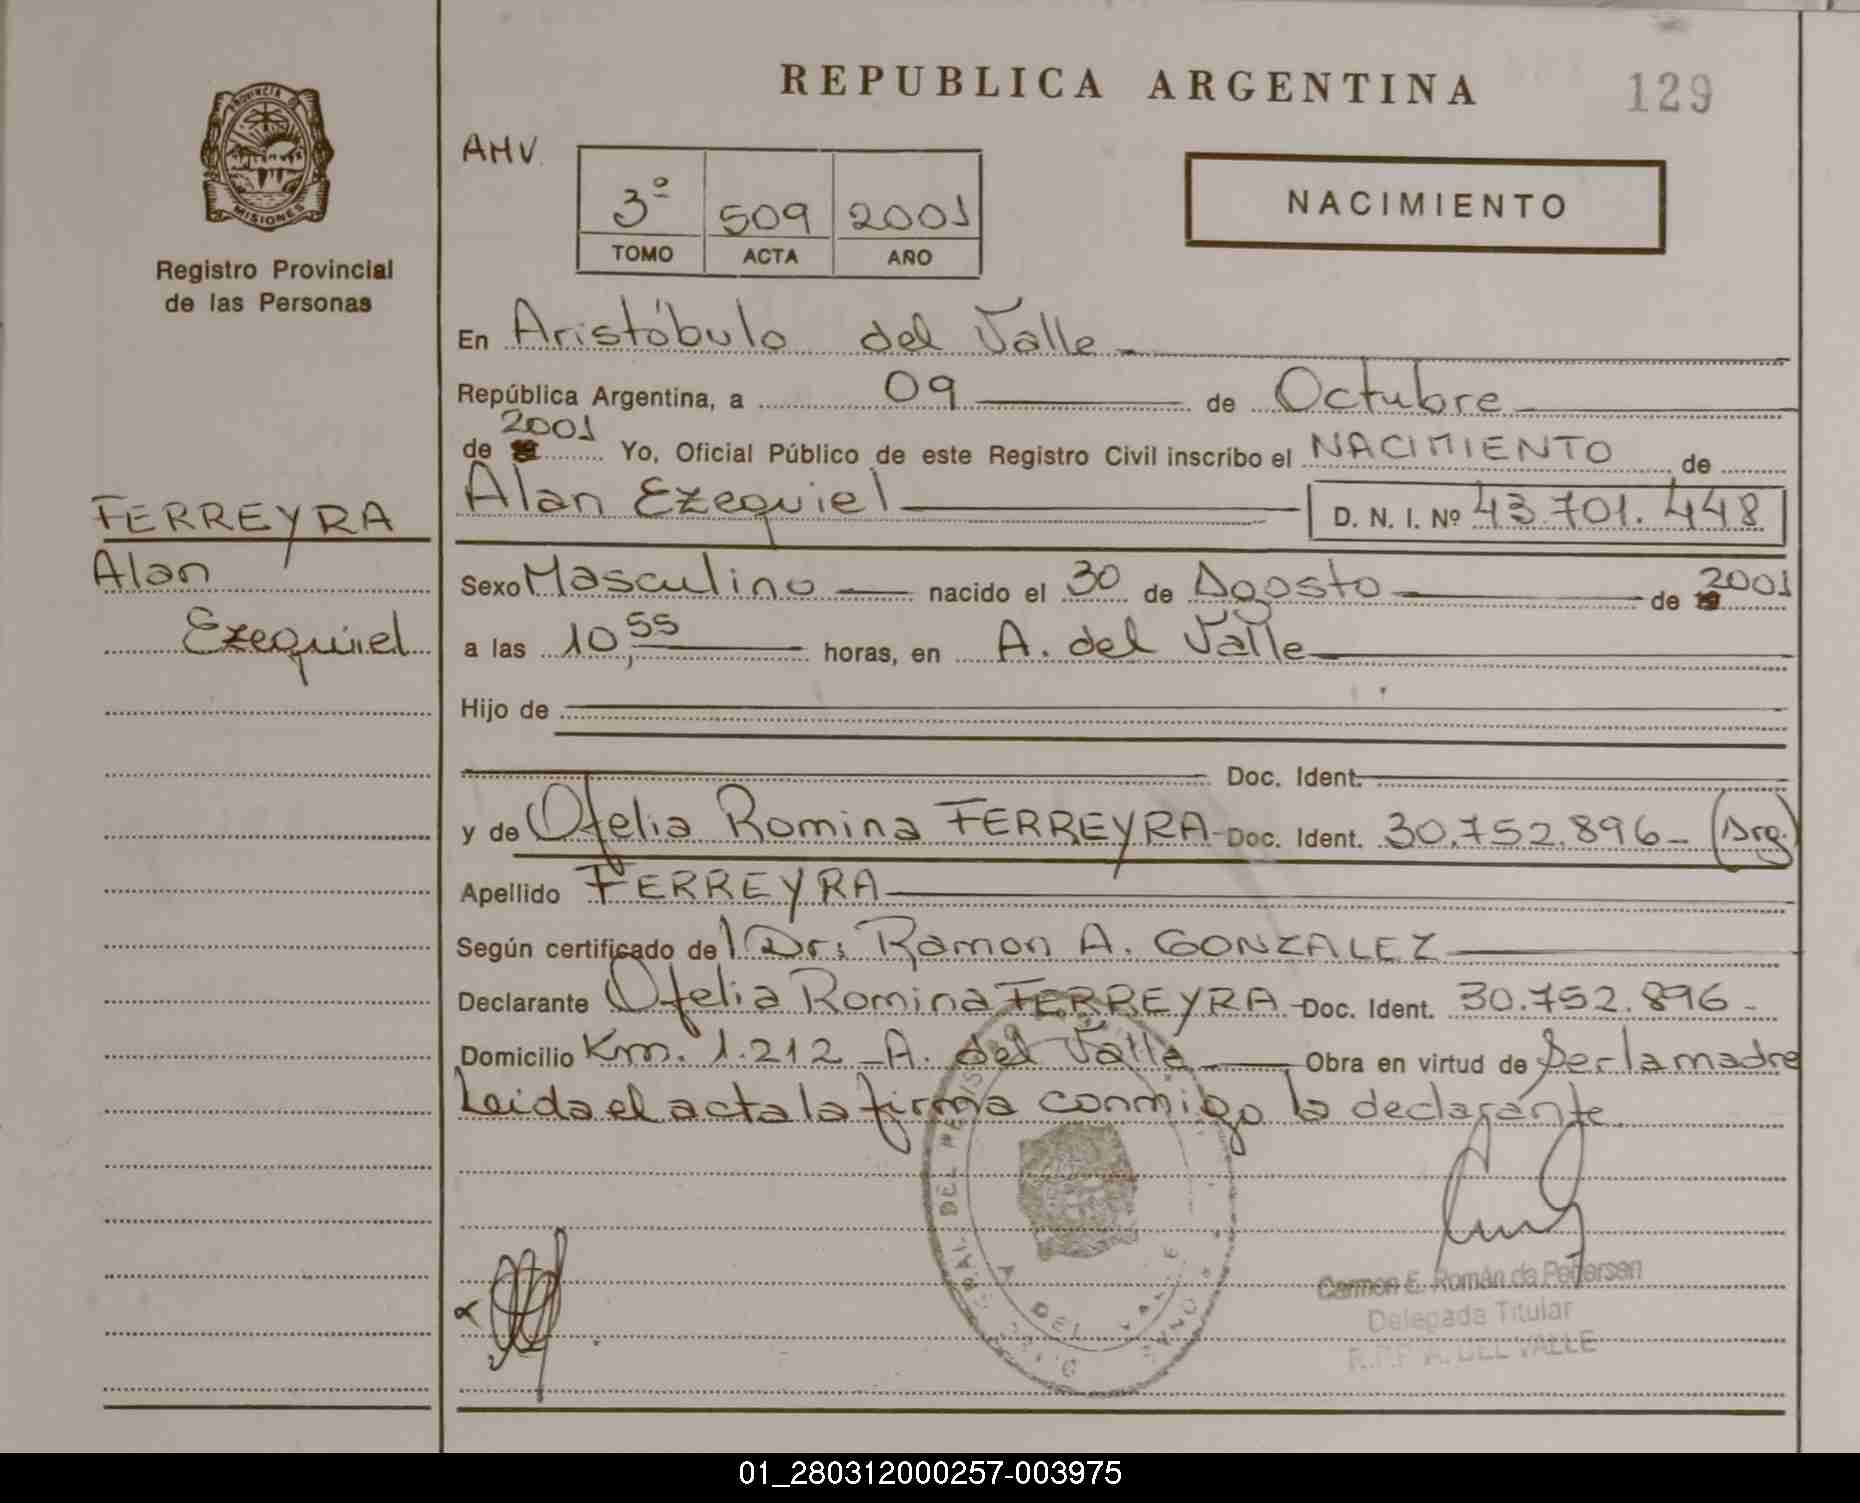 REPUBLICA ARGENTINA
129
PROVINCIA DE
MISIONES
Registro Provincial
de las Personas
AMV.
3º 509 2001
TOMO ACTA AÑO
NACIMIENTO
En Aristóbulo del Valle
República Argentina, a 09 de Octubre
de 2001 Yo, Oficial Público de este Registro Civil inscribo el NACIMIENTO de
Alan Ezequiel D. N. I. Nº 43.701.448
FERREYRA
Alan
Ezequiel
Sexo Masculino nacido el 30 de Agosto de 2001
a las 10,55 horas, en A. del Valle
Hijo de
Doc. Ident.
y de Ofelia Romina FERREYRA- Doc. Ident. 30.752.896- (Arg.)
Apellido FERREYRA
Según certificado del Dr: Ramon A. GONZALEZ
Declarante Ofelia Romina FERREYRA - Doc. Ident. 30.752.896-
Domicilio Km. 1.212 - A. del Valle Obra en virtud de Ser la madre
Leida el acta la firma conmigo la declarante.
A DEL VALLE
Carmen E. Román de Pedersen
Delegada Titular
R.P.P A. DEL VALLE
01_280312000257-003975